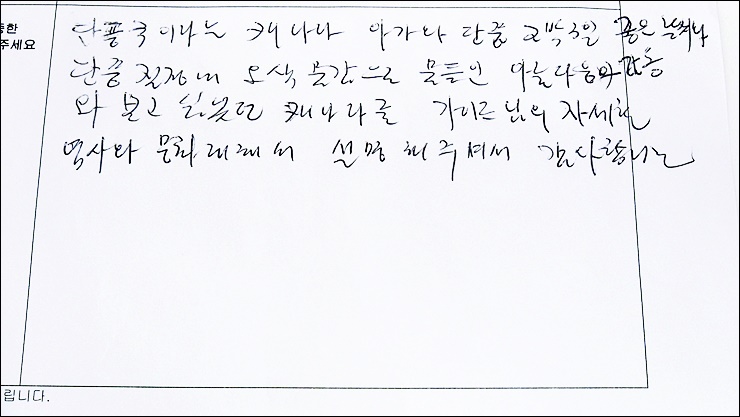 한
주세요
단풍국이라는 캐나다 아가와 단풍 2박3일 좋은 날씨와
단풍 절정에 오색 물감으로 물들인 아름다움과 감동
와 보고 싶었던 캐나다를 가이드님의 자세한
역사와 문화에 대해서 설명해주셔서 감사합니다
립니다.